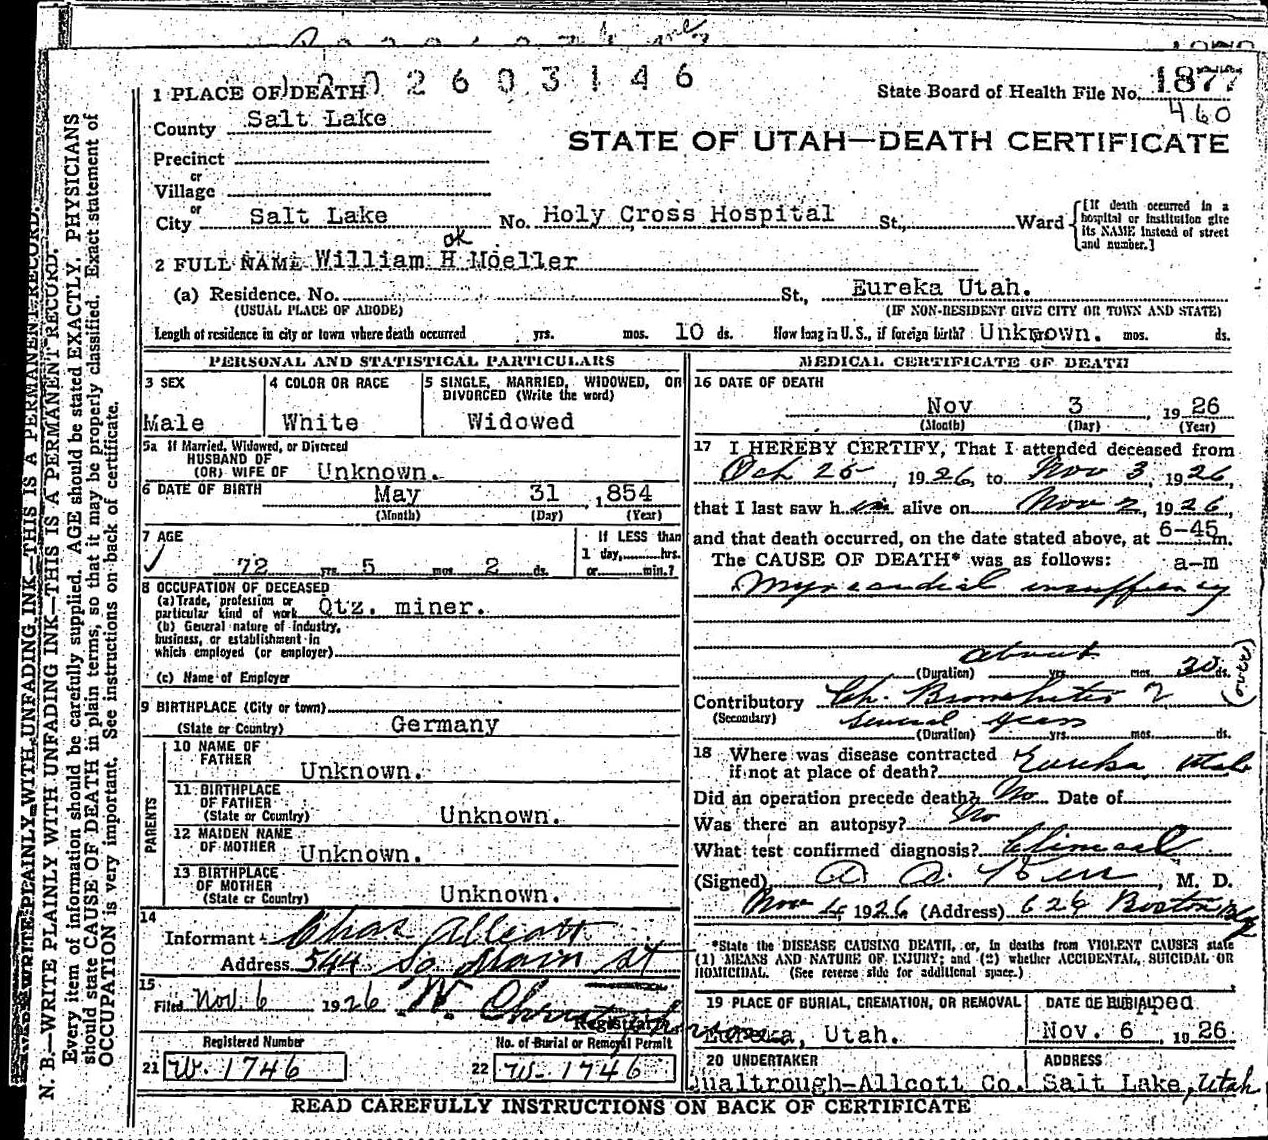 2 6 0 3 1 4 6
1 PLACE OF DEATH
State Board of Health File No. 1877
460
County Salt Lake
STATE OF UTAH—DEATH CERTIFICATE
Precinct
or
Village
or
City Salt Lake No. Holy Cross Hospital St., Ward
[If death occurred in a hospital or institution give its NAME instead of street and number.]
ok
2 FULL NAME William H Moeller
(a) Residence. No. St., Eureka Utah.
(USUAL PLACE OF ABODE) (IF NON-RESIDENT GIVE CITY OR TOWN AND STATE)
Length of residence in city or town where death occurred yrs. mos. 10 ds. How long in U. S., if foreign birth? Unknown. mos. ds.
PERSONAL AND STATISTICAL PARTICULARS
3 SEX
Male
4 COLOR OR RACE
White
5 SINGLE, MARRIED, WIDOWED, OR
DIVORCED (Write the word)
Widowed
5a If Married, Widowed, or Divorced
HUSBAND OF
(OR) WIFE OF Unknown.
6 DATE OF BIRTH May 31 ,854
(Month) (Day) (Year)
7 AGE
72 yrs 5 mos 2 ds.
If LESS than
1 day, hrs.
or min.?
8 OCCUPATION OF DECEASED
(a) Trade, profession or
particular kind of work Qtz. miner.
(b) General nature of industry,
business, or establishment in
which employed (or employer)
(c) Name of Employer
9 BIRTHPLACE (City or town)
(State or Country) Germany
PARENTS
10 NAME OF
FATHER
Unknown.
11 BIRTHPLACE
OF FATHER
(State or Country) Unknown.
12 MAIDEN NAME
OF MOTHER Unknown.
13 BIRTHPLACE
OF MOTHER
(State or Country) Unknown.
14
Informant Chas Allcott
Address 544 So Main St
15
Filed Nov. 6 1926
Registrar
Registered Number
21 W. 1746
No. of Burial or Removal Permit
22 W-1746
MEDICAL CERTIFICATE OF DEATH
16 DATE OF DEATH
Nov 3, 1926
(Month) (Day) (Year)
17 I HEREBY CERTIFY, That I attended deceased from
Oct 25, 1926, to Nov 3, 1926,
that I last saw him alive on Nov 2, 1926,
and that death occurred, on the date stated above, at 6-45 m.
The CAUSE OF DEATH* was as follows: a-m
Myocardial insufficiency
about
(Duration) yrs mos. 30 ds.
(over)
Contributory Ch. Bronchitis ?
(Secondary) several years
(Duration) yrs. mos. ds.
18 Where was disease contracted
if not at place of death? Eureka, Utah
Did an operation precede death? No Date of
Was there an autopsy? No
What test confirmed diagnosis? Clinical
(Signed) A. A. Kerr, M. D.
Nov 4, 1926 (Address) 626 Boston Bldg
*State the DISEASE CAUSING DEATH, or, in deaths from VIOLENT CAUSES state
(1) MEANS AND NATURE OF INJURY; and (2) whether ACCIDENTAL, SUICIDAL OR
HOMICIDAL. (See reverse side for additional space.)
19 PLACE OF BURIAL, CREMATION, OR REMOVAL
Eureka, Utah.
DATE OF BURIAL
Nov. 6, 1926
20 UNDERTAKER
Qualtrough-Allcott Co.
ADDRESS
Salt Lake, Utah
READ CAREFULLY INSTRUCTIONS ON BACK OF CERTIFICATE
N. B.—WRITE PLAINLY WITH UNFADING INK—THIS IS A PERMANENT RECORD.
Every item of information should be carefully supplied. AGE should be stated EXACTLY. PHYSICIANS
should state CAUSE OF DEATH in plain terms, so that it may be properly classified. Exact statement of
OCCUPATION is very important. See instructions on back of certificate.